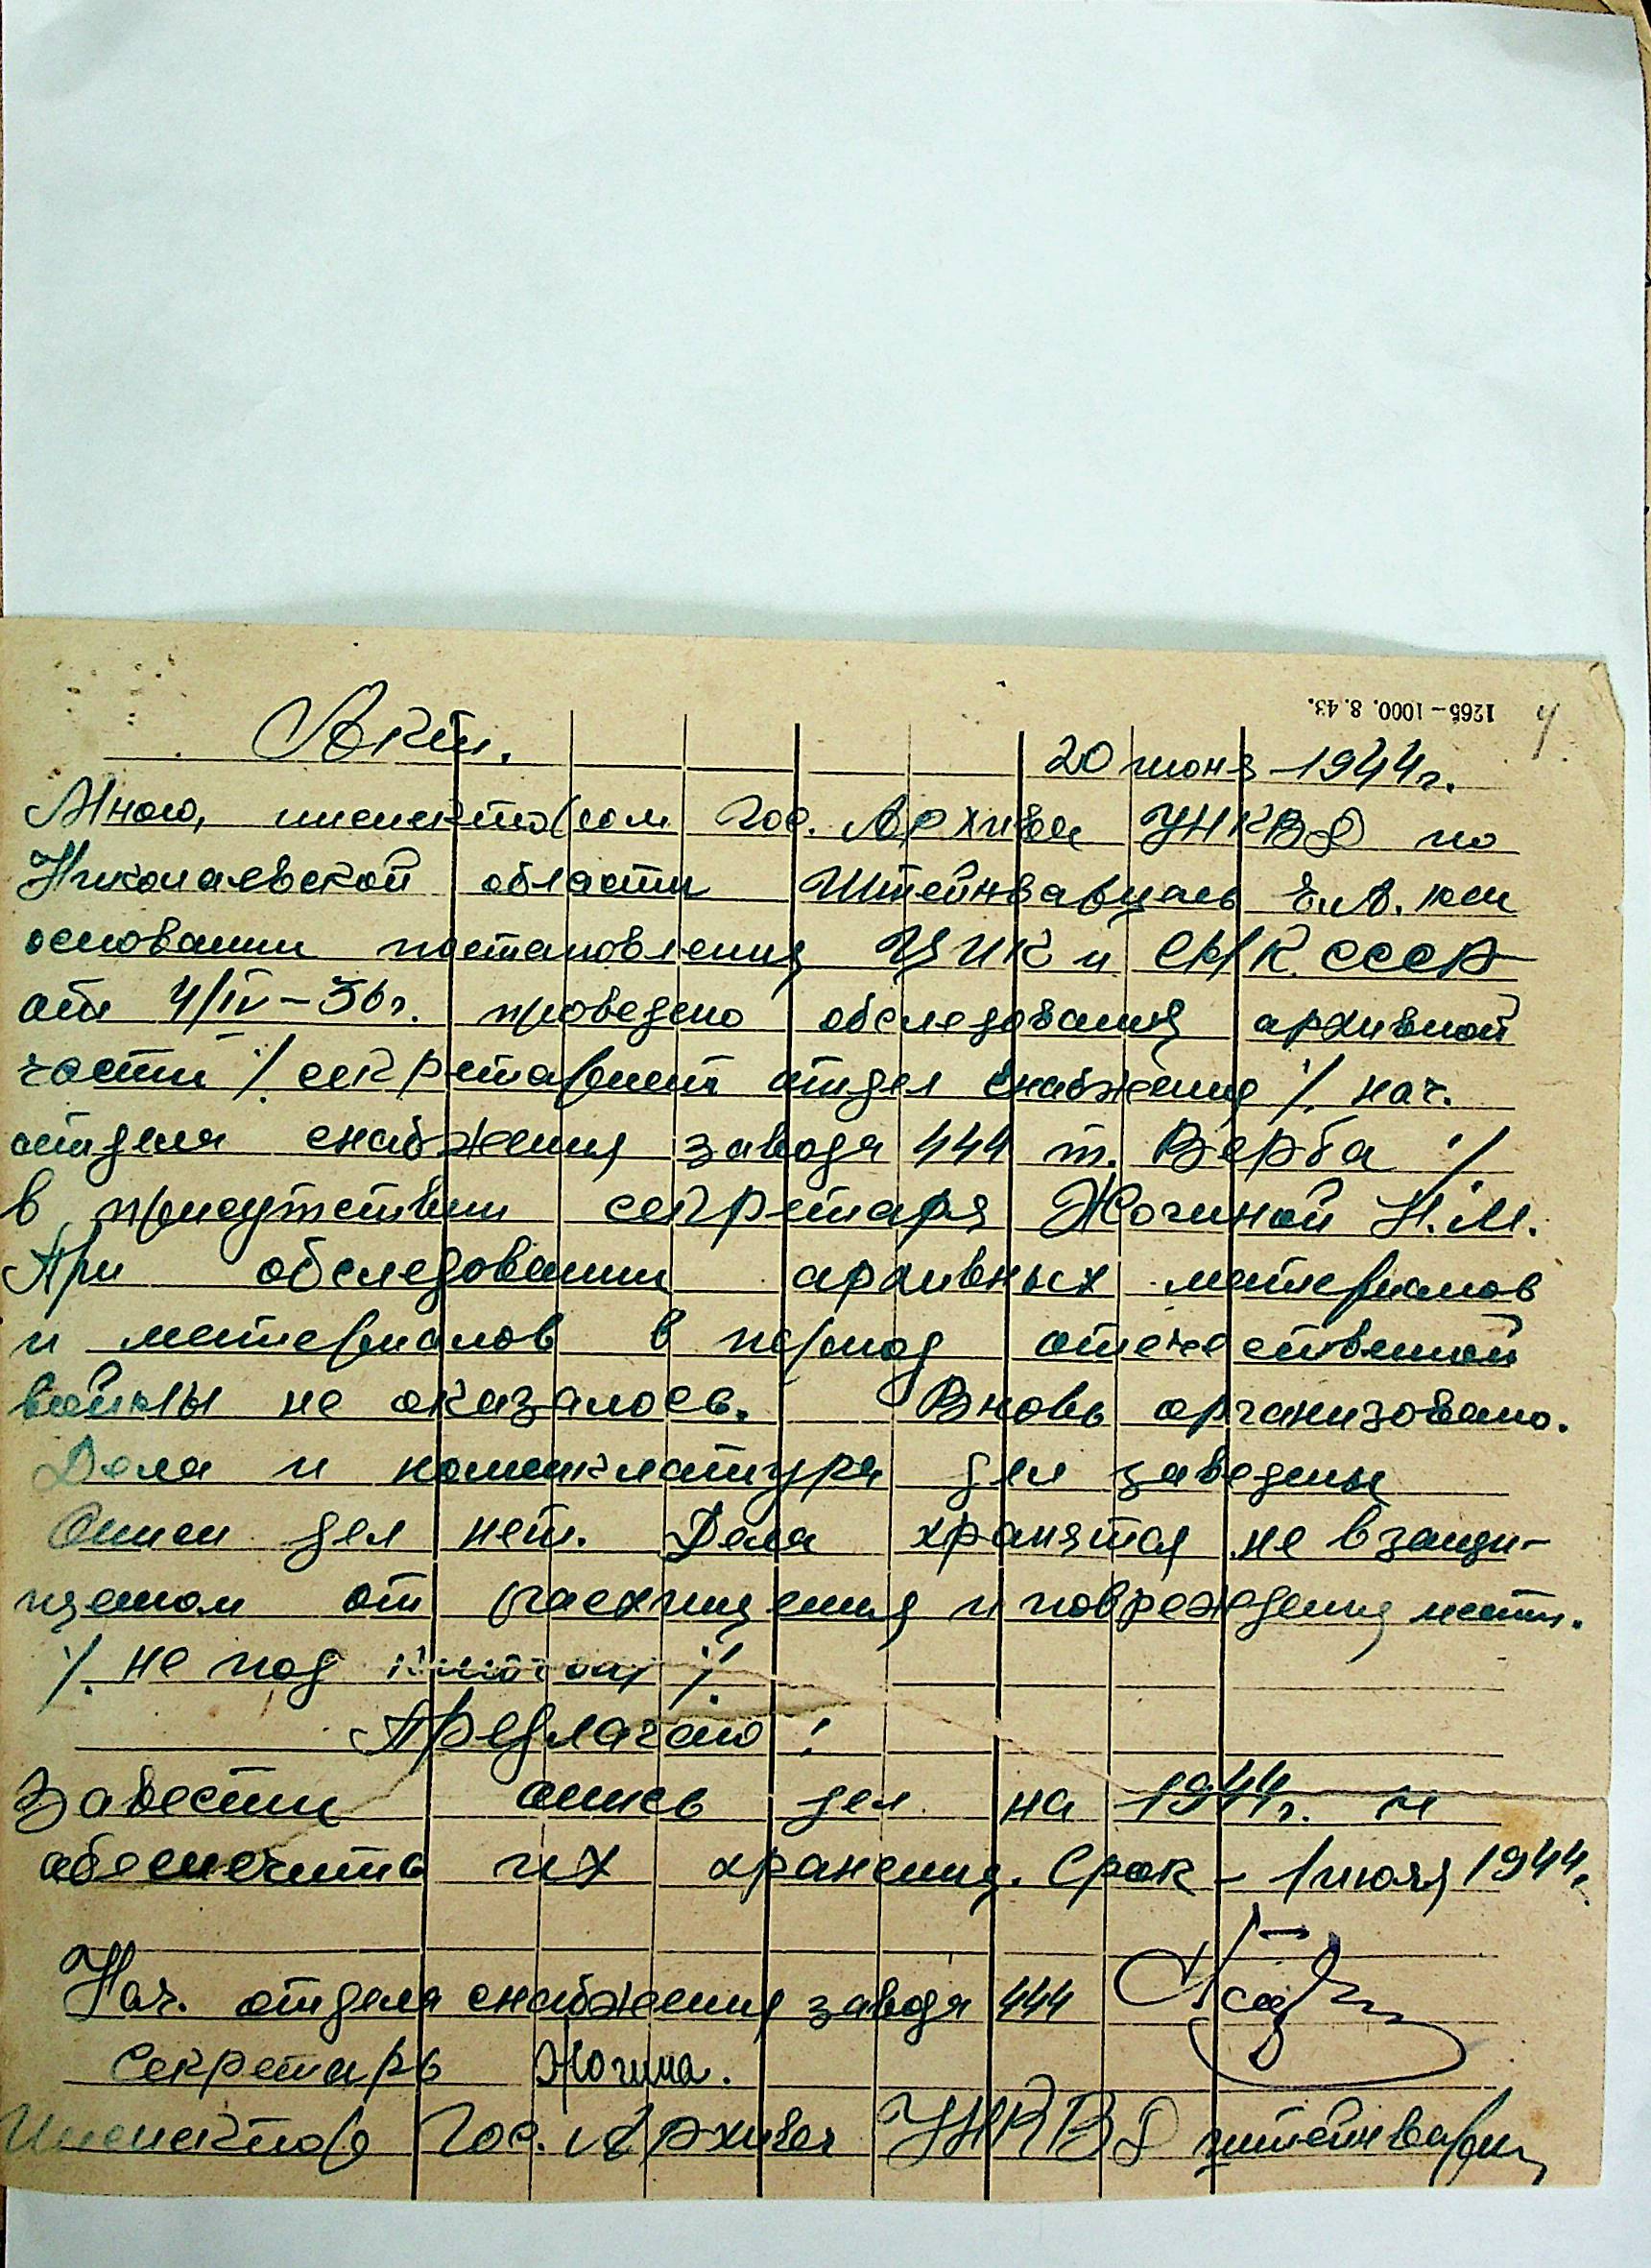 1265–1000. 8. 43.
4
Акт.
20 июня 1944 г.
Мною, инспектором Гос. Архива УНКВД по
Николаевской области Штейнварцель Е.А. на
основании постановления ЦИК и СНК СССР
от 4/IV–36 г. проведено обследования архивной
части /. секретариат отдел снабжения /. нач.
отдела снабжения завода 444 т. Верба ./.
в присутствии секретаря Жогиной Н.М.
При обследовании архивных материалов
и материалов в период отечественной
войны не оказалось. Вновь организовано.
Дела и номенклатура дел заведены
Описи дел нет. Дела хранятся не в защи-
щеном от расхищения и повреждения мести.
/. не под /.
Предлагаю:
Завести опись дел на 1944 г. и
обеспечить их хранения. Срок – 1 июля 1944.
Нач. отдела снабжения завода 444
Секретарь Жогина.
Инспектор Гос. Архива УНКВД